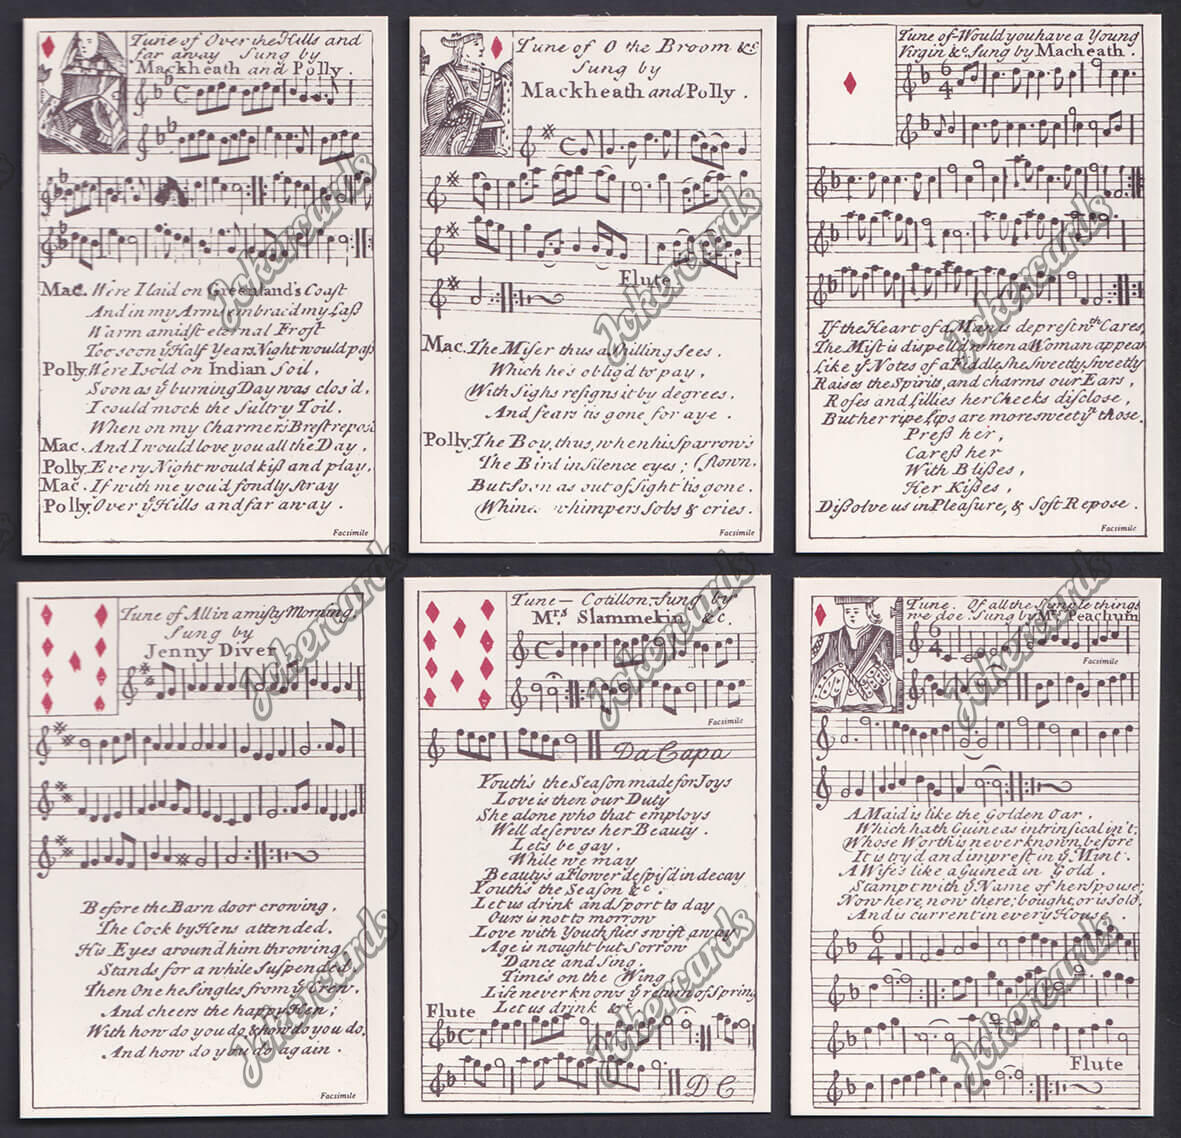 Tune of Over the Hills and
far away Sung by
Mackheath and Polly.
Mac. Were I laid on Greenland's Coast
And in my Arms embrac'd my Lass
Warm amidst eternal Frost
Too soon yͤ Half Years Night would pass
Polly. Were I sold on Indian Soil,
Soon as yͤ burning Day was clos'd,
I could mock the Sultry Toil.
When on my Charmer's Brest repos'd
Mac. And I would love you all the Day,
Polly. Every Night would kiss and play,
Mac. If with me you'd fondly stray
Polly. Over yͤ Hills and far away.
Facsimile
Tune of O the Broom &c
Sung by
Mackheath and Polly.
Flute
Mac. The Miser thus a shilling sees.
Which he's oblig'd to pay,
With Sighs resigns it by degrees,
And fears 'tis gone for aye.
Polly. The Boy, thus, when his Sparrow's
The Bird in Silence eyes; (flown.
But Soon as out of Sight 'tis gone.
Whines whimpers Sobs & cries.
Facsimile
Tune of Would you have a Young
Virgin &c. Sung by Macheath.
If the Heart of a Man is deprest wth Cares,
The Mist is dispell'd when a Woman appears
Like yͤ Notes of a Fiddle She Sweetly Sweetly
Raises the Spirits, and charms our Ears,
Roses and lillies her Cheeks disclose,
But her ripe Lips are more sweet yn those.
Press her,
Caress her
With Blisses,
Her Kisses,
Dissolve us in Pleasure, & Soft Repose.
Facsimile
Tune of All in a misty Morning
Sung by
Jenny Diver
Before the Barn door crowing,
The Cock by Hens attended,
His Eyes around him throwing,
Stands for a while Suspended,
Then One he Singles from yͤ Crew,
And cheers the happy Hen;
With how do you do & how do you do,
And how do you do again.
Facsimile
Tune — Cotillon, Sung by
Mrs. Slammekin &c.
Facsimile
Da Capa
Youth's the Season made for Joys
Love is then our Duty
She alone who that employs
Well deserves her Beauty.
Let's be gay,
While we may
Beauty's a Flower despis'd in decay
Youth's the Season &c.
Let us drink and sport to day
Ours is not to morrow
Love with Youth flies swift away
Age is nought but Sorrow
Dance and Sing,
Time's on the Wing
Life never knows yͤ return of Spring
Let us drink &c
Flute
D C
Tune. Of all the simple things
we doe. Sung by Mrs Peachum
Facsimile
A Maid is like the Golden Oar,
Which hath Guineas intrinsical in't,
Whose Worth is never known, before
It is try'd and imprest in yͤ Mint.
A Wife's like a Guinea in Gold.
Stampt with yͤ Name of her Spouse;
Now here, now there; bought, or is Sold,
And is current in every House.
Flute
Jokercards
Jokercards
Jokercards
Jokercards
Jokercards
Jokercards
Jokercards
Jokercards
Jokercards